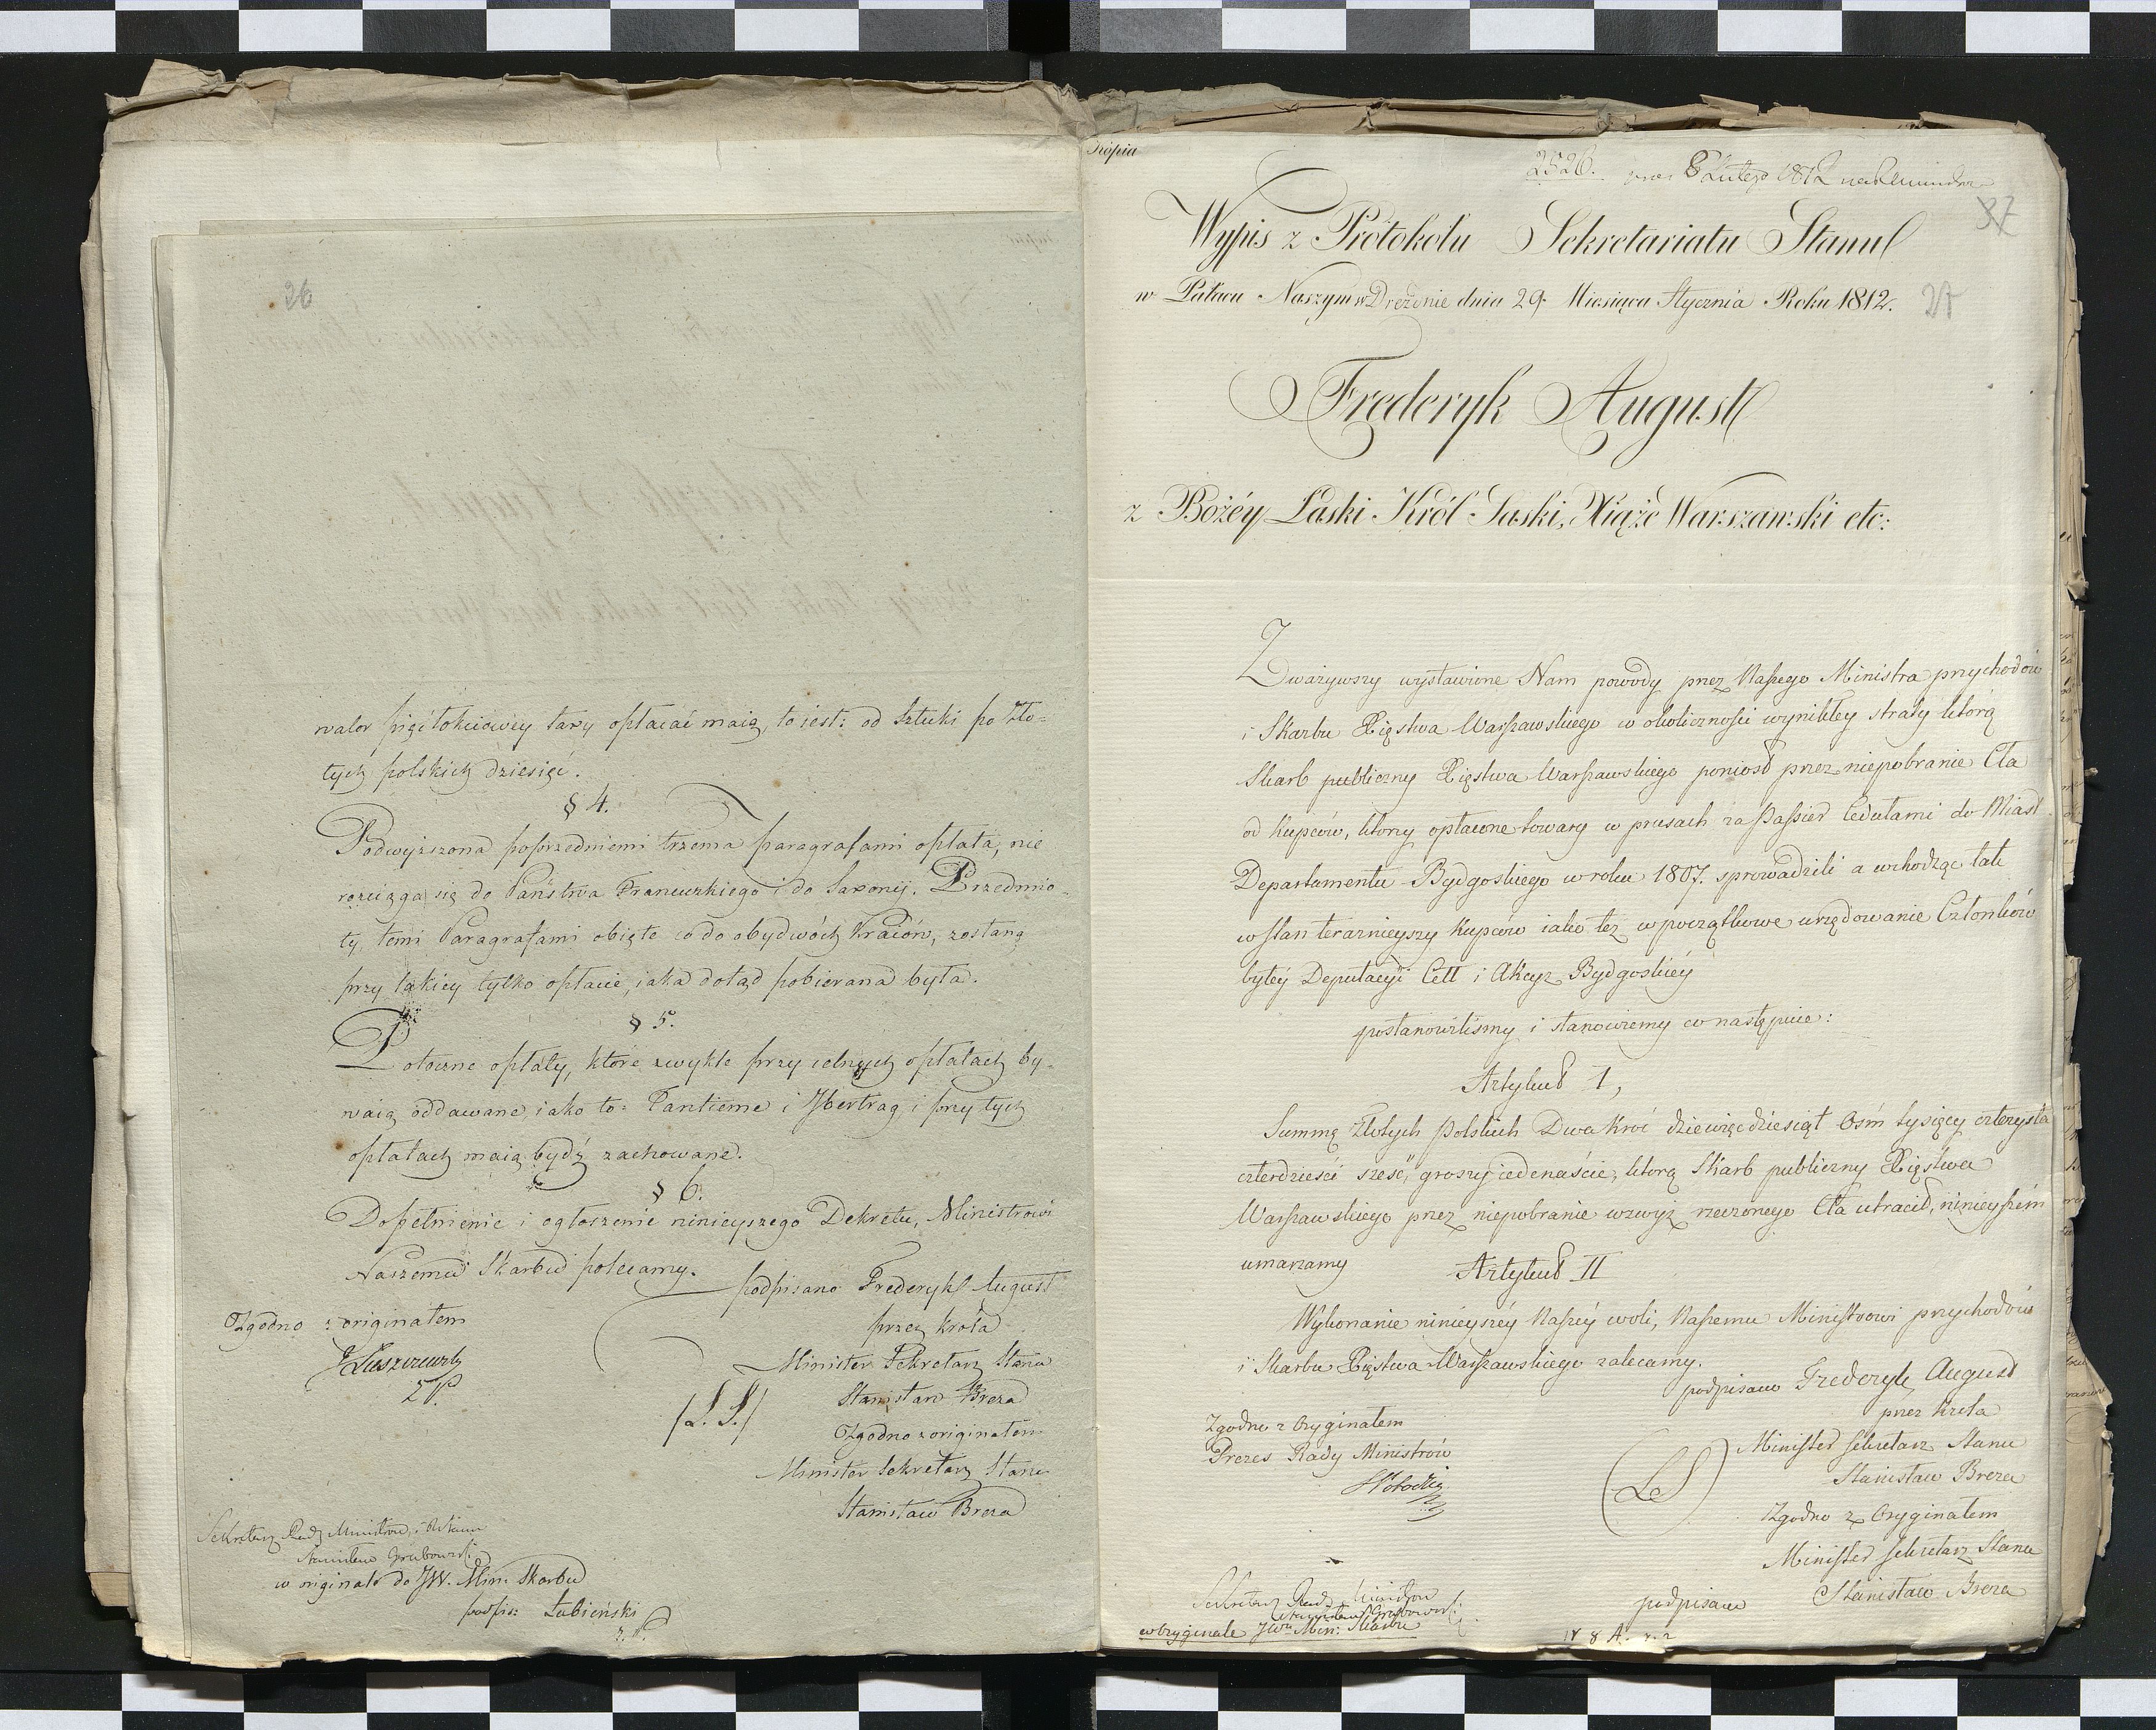 26
walor pięćłokciowey tary opłacać maią, to iest: od sztuki po zło-
tych polskich dziesięć.
§ 4.
Podwyższona poprzedniemi trzema paragrafami opłata, nie
rozciąga się do Państwa Francuzkiego i do Saxonij. Przedmio-
ty, temi Paragrafami obięte co do obydwóch Kraiów, zostaną
przy takiey tylko opłacie, iaka dotąd pobierana była.
§ 5.
Potoczne opłaty, które zwykle przy celnych opłatach by-
waią oddawane, iako to: Tantieme i Ubertrag, i przy tych
opłatach maią bydź zachowane.
§ 6.
Dopełnienie i ogłoszenie ninieyszego Dekretu, Ministrowi
Naszemu Skarbu polecamy.
podpisano Frederyk August
Zgodno z originałem
przez Króla
Łuszczewski
Minister Sekretarz Stanu
/L. S./
Stanisław Breza
Zgodno z originałem
Minister Sekretarz Stanu
Stanisław Breza
Sekretarz Rady Ministrów
Stanisław Grabowski
w originale do JW. Min. Skarbu
podpis: Łubieński
Kopia
2526. 8 Lutego 1812
37
Wypis z Protokołu Sekretariatu Stanu
w Pałacu Naszym w Dreźnie dnia 29. Miesiąca Stycznia Roku 1812.
27
Frederyk August
z Bożéy Łaski Król Saski, Xiążę Warszawski etc:
Zważywszy wystawione Nam powody przez Naszego Ministra przychodów
i Skarbu Xięstwa Warszawskiego w okoliczności wynikłey straty którą
Skarb publiczny Xięstwa Warszawskiego poniosł przez niepobranie Cła
od Kupców, którzy opłacone towary w prusach za Passier Cedułami do Miast
Departamentu Bydgoskiego w roku 1807. sprowadzili a wchodząc tak
w stan terazniejszy Kupców iako też w początkowe urzędowanie Członków
byłey Deputacyi Cełł i Akcyz Bydgoskiéy
postanowiliśmy i stanowiemy co następuie:
Artykuł I,
Summę Złotych Polskich Dwakroć dziewięćdziesiąt Ośm tysięcy czterysta
czterdzieści sześć, groszy iedenaście, którą Skarb publiczny Xięstwa
Warszawskiego przez niepobranie wzwyż rzeczonego Cła utracił, ninieyszém
umarzamy
Artykuł II
Wykonanie ninieyszéy Naszéy woli, Naszemu Ministrowi przychodów
i Skarbu Xięstwa Warszawskiego zalecamy.
podpisano Frederyk August
przez Króla
Zgodno z Oryginałem
Prezes Rady Ministrów
Minister Sekretarz Stanu
(LS)
Stanisław Breza
Zgodno z Oryginałem
Minister Sekretarz Stanu
podpisano Stanisław Breza
Sekretarz Rady Ministrów
Stanisław Grabowski
w Oryginale JW Min: Skarbu